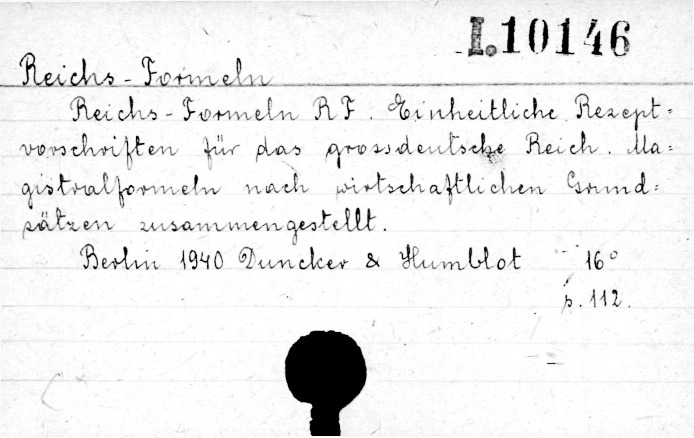 I.10146
Reichs-Formeln
Reichs-Formeln RF. Einheitliche Rezept=
vorschriften für das grossdeutsche Reich. Ma=
gistralformeln nach wirtschaftlichen Grund=
sätzen zusammengestellt.
Berlin 1940 Duncker & Humblot 16°
p. 112.